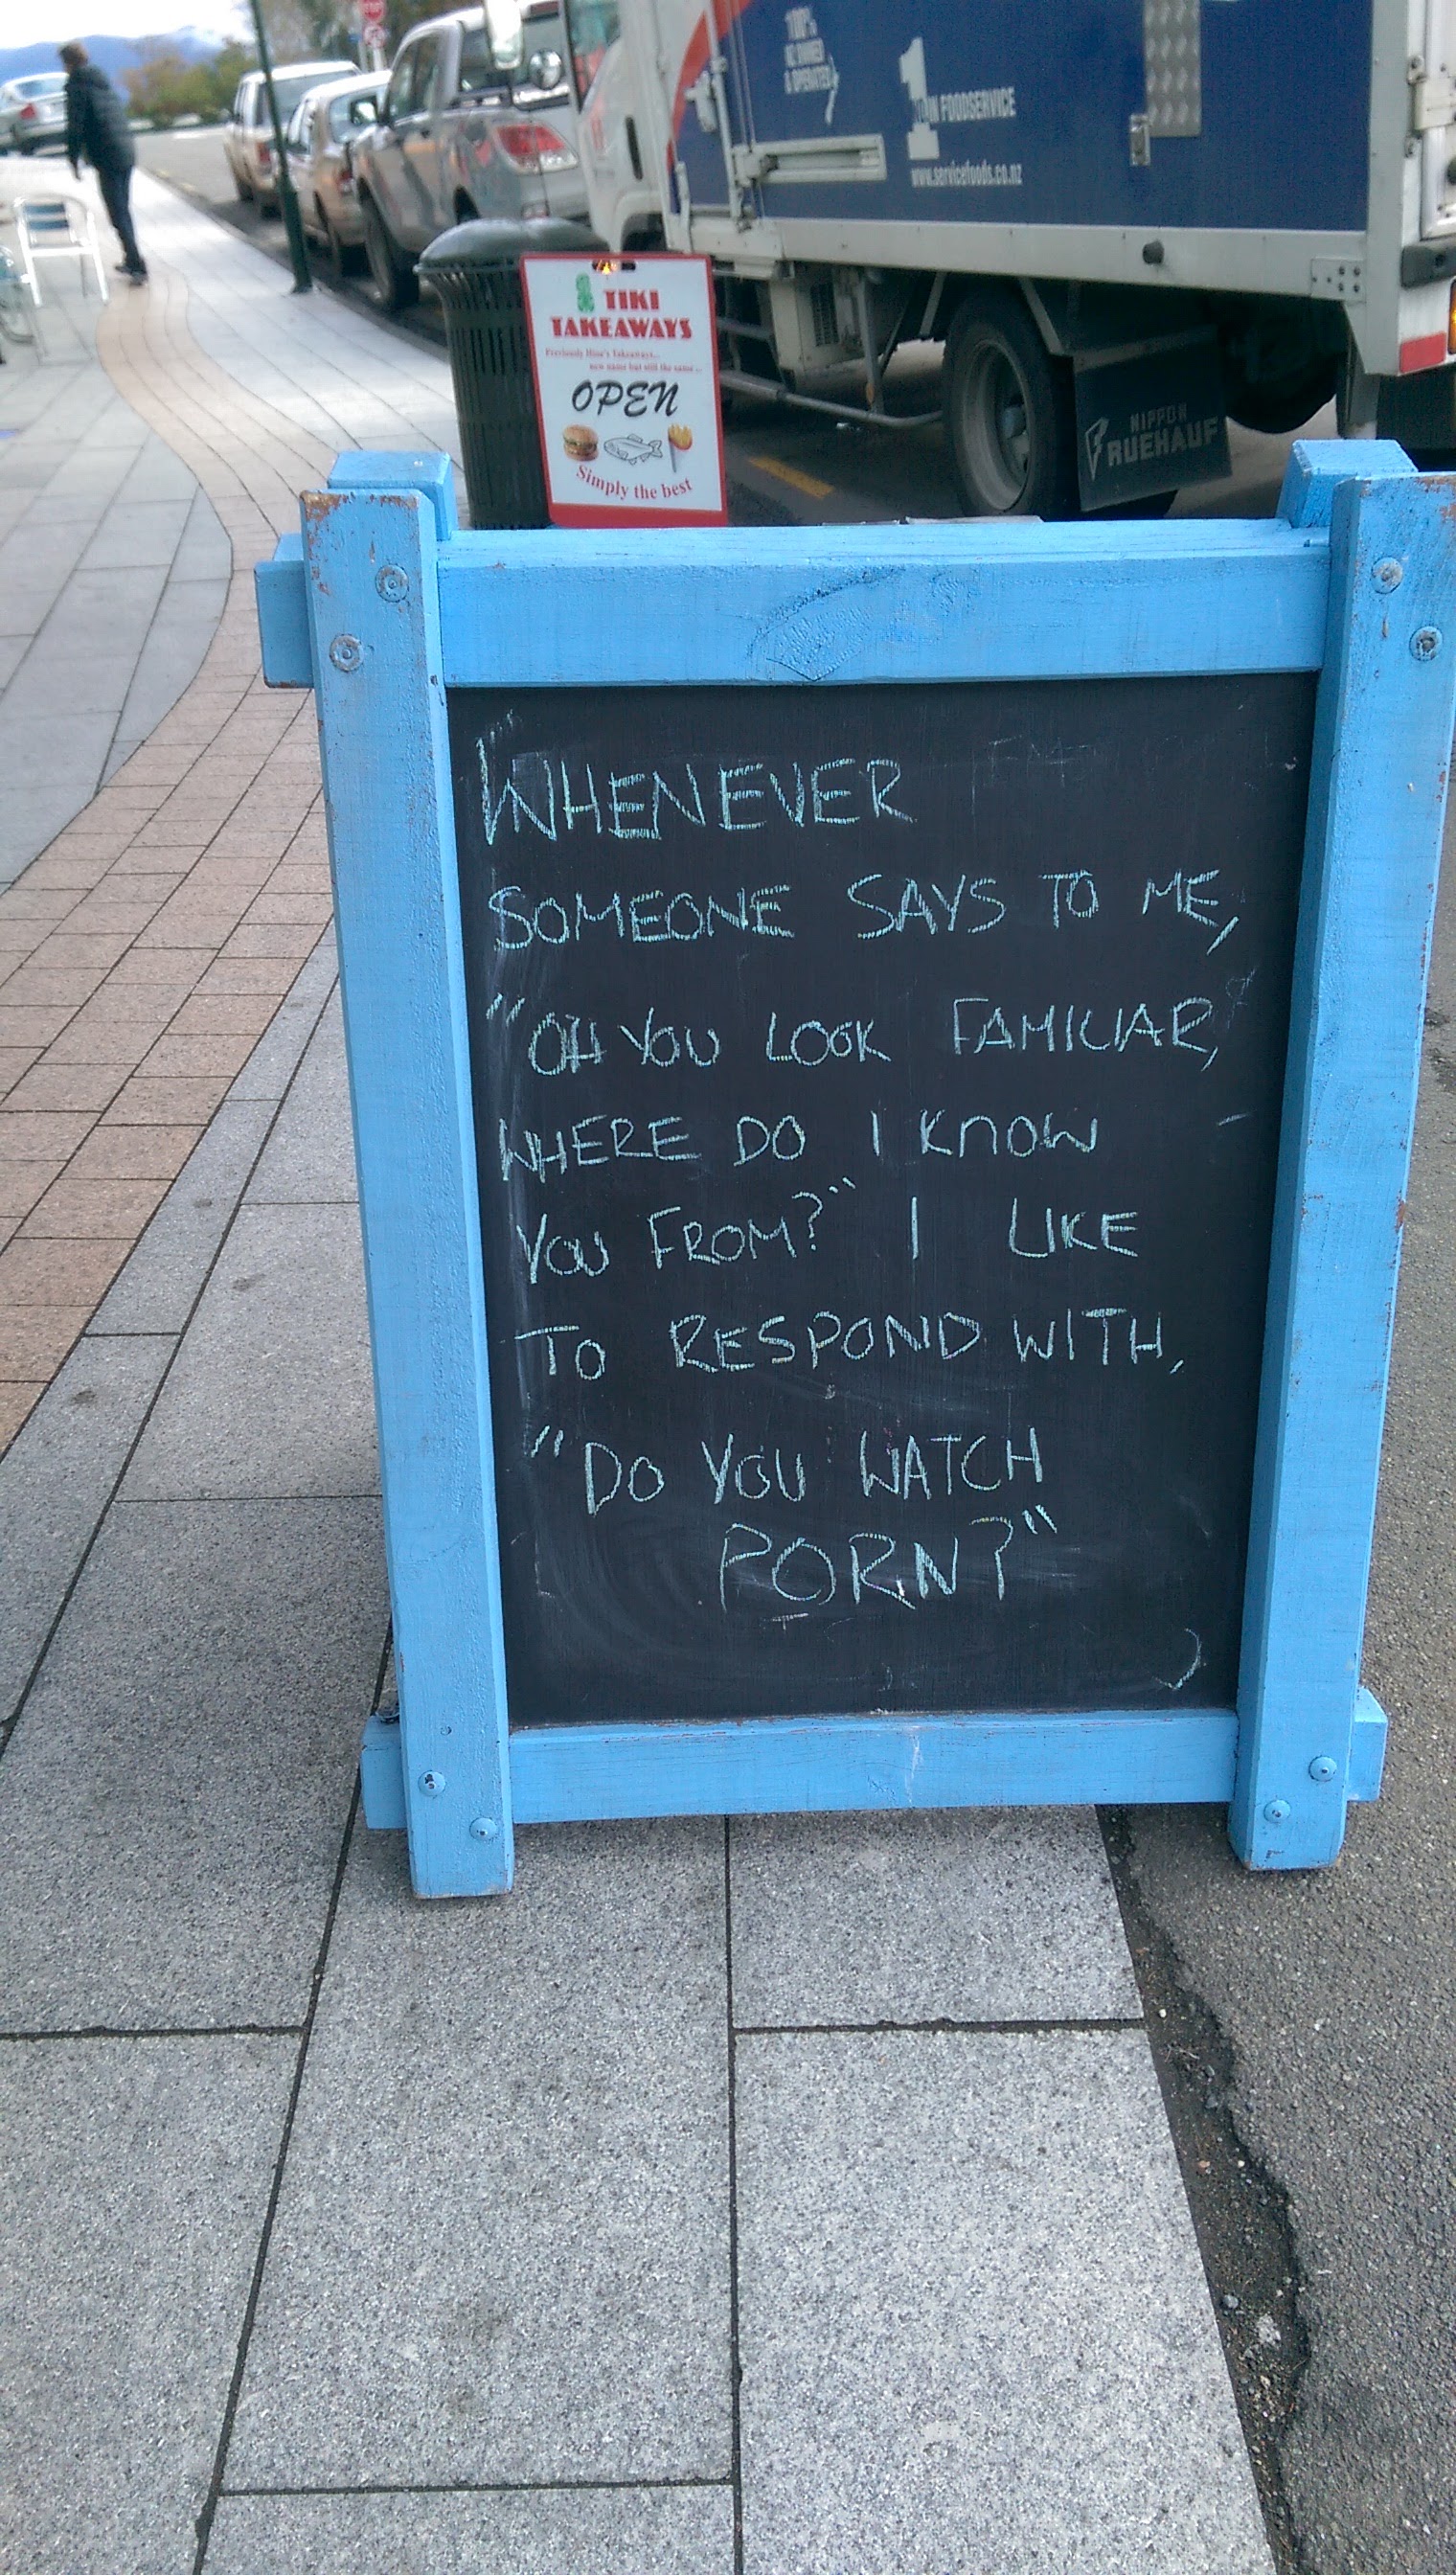 100%
NZ OWNED
& OPERATED
1
IN FOODSERVICE
www.servicefoods.co.nz
TIKI
TAKEAWAYS
Previously Hine's Takeaways...
new name but still the same...
OPEN
Simply the best
NIPPON
FRUEHAUF
WHENEVER
SOMEONE SAYS TO ME,
"OH YOU LOOK FAMILIAR,
WHERE DO I KNOW
YOU FROM?" I LIKE
TO RESPOND WITH,
"DO YOU WATCH
PORN?"